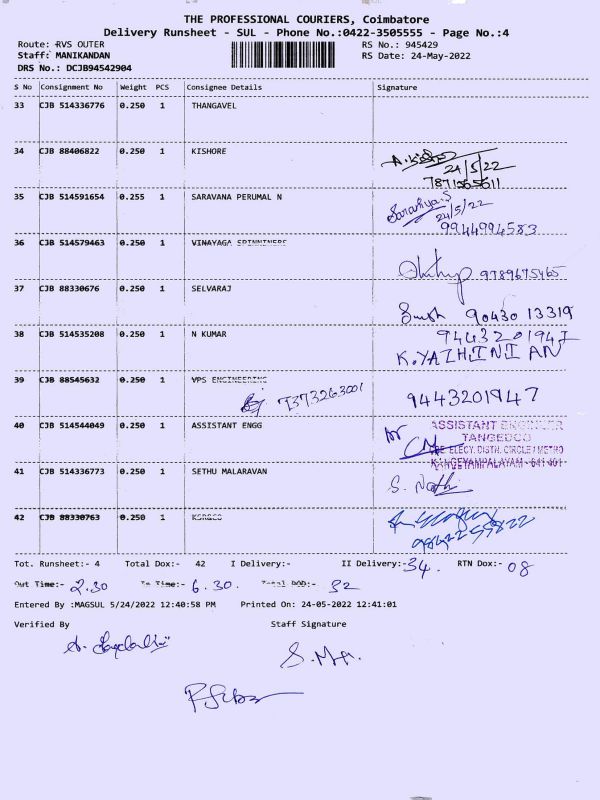 THE PROFESSIONAL COURIERS, Coimbatore
Delivery Runsheet - SUL - Phone No.:0422-3505555 - Page No.:4
Route: RVS OUTER RS No.: 945429
Staff: MANIKANDAN RS Date: 24-May-2022
DRS No.: DCJB94542904
S No Consignment No Weight PCS Consignee Details Signature
33 CJB 514336776 0.250 1 THANGAVEL
34 CJB 88406822 0.250 1 KISHORE
24/5/22
35 CJB 514591654 0.255 1 SARAVANA PERUMAL N
24/5/22
9944994583
36 CJB 514579463 0.250 1 VINAYAGA SPINNINERS
9789675465
37 CJB 88330676 0.250 1 SELVARAJ
90430 13319
38 CJB 514535208 0.250 1 N KUMAR
9443201947
K.YAZHINIAN
39 CJB 88545632 0.250 1 VPS ENGINEERING
7373263001
9443201947
40 CJB 514544049 0.250 1 ASSISTANT ENGG
ASSISTANT ENGINEER
TANGEDCO
ELECY. DISTN. CIRCLE / METRO
KANGEYAMPALAYAM - 641 401
41 CJB 514336773 0.250 1 SETHU MALARAVAN
S. Nathi
42 CJB 88330763 0.250 1
Tot. Runsheet:- 4 Total Dox:- 42 I Delivery:- II Delivery:- 34. RTN Dox:- 08
Out Time:- 2.30 In Time:- 6.30. Total DOD:- 32
Entered By :MAGSUL 5/24/2022 12:40:58 PM Printed On: 24-05-2022 12:41:01
Verified By Staff Signature